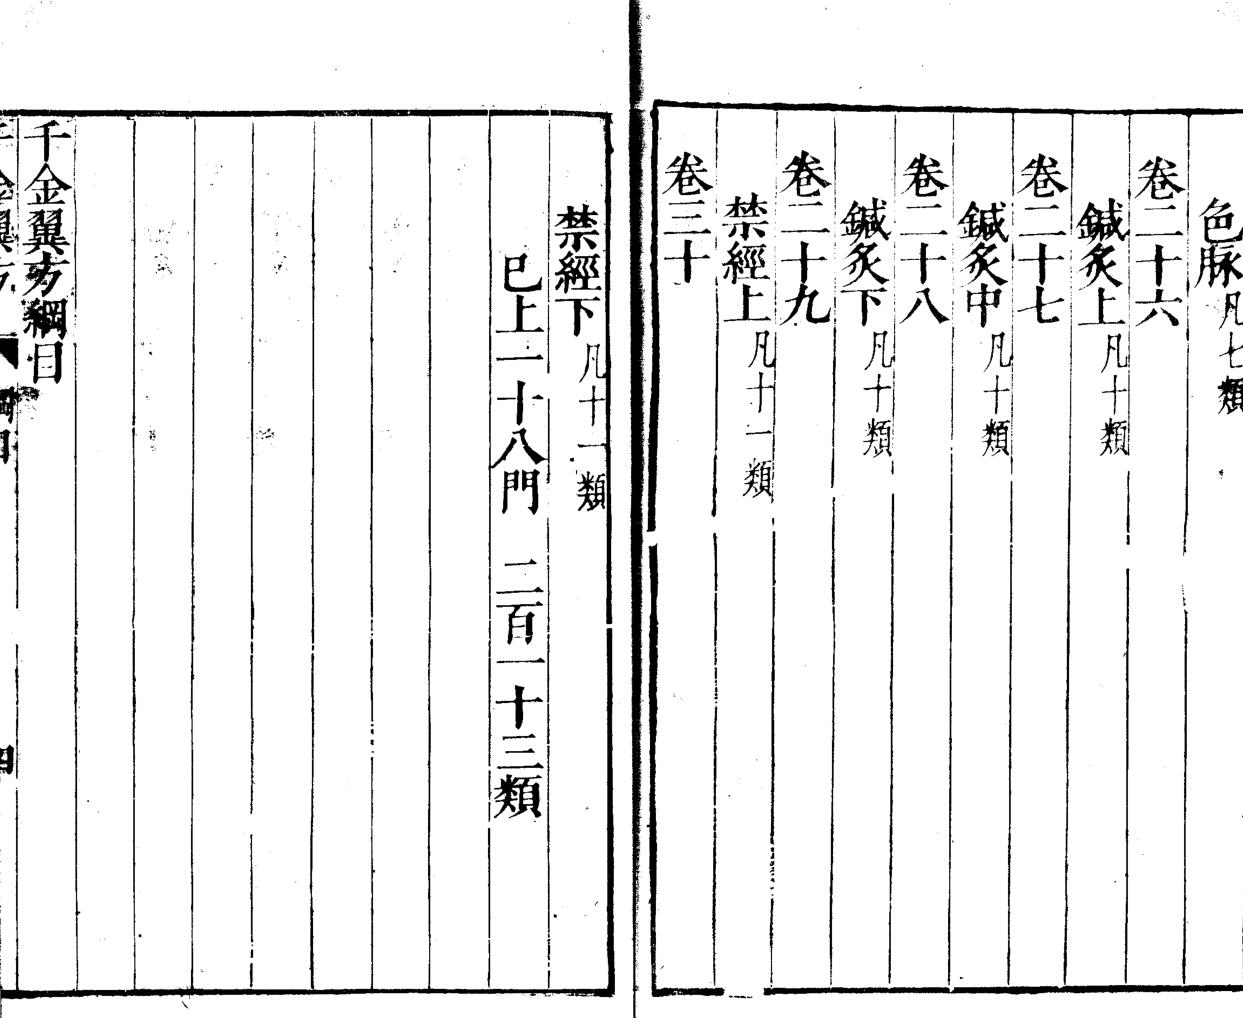 色脉凡七類
卷二十六
鍼炙上凡十類
卷二十七
鍼炙中凡十類
卷二十八
鍼炙下凡十類
卷二十九
禁經上凡十一類
卷三十
禁經下凡十一類
已上一十八門　二百一十三類
千金翼方綱目
千金翼方　綱目　四